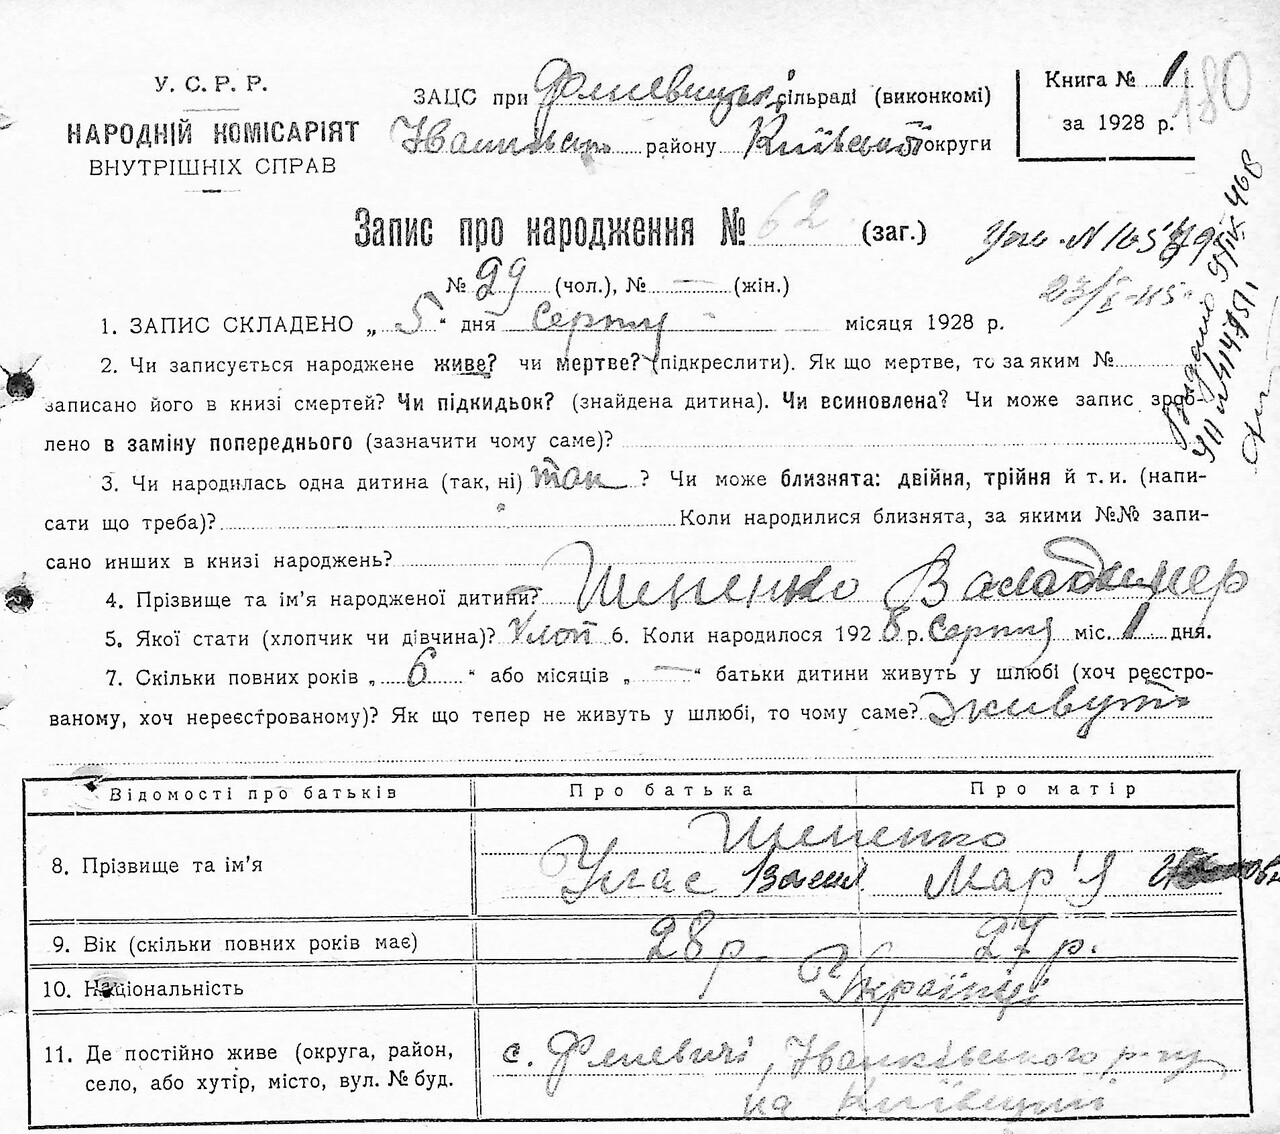 У. С. Р. Р.
НАРОДНІЙ КОМІСАРІЯТ
ВНУТРІШНІХ СПРАВ
ЗАЦС при сільраді (виконкомі)
району Київської округи
Книга № 1
за 1928 р.
180
Запис про народження № 62 (заг.)
№ 29 (чол.), № — (жін.)
1. ЗАПИС СКЛАДЕНО „ 5 “ дня Серпня місяця 1928 р.
2. Чи записується народжене живе? чи мертве? (підкреслити). Як що мертве, то за яким №
записано його в книзі смертей? Чи підкидьок? (знайдена дитина). Чи всиновлена? Чи може запис зроб-
лено в заміну попереднього (зазначити чому саме)?
3. Чи народилась одна дитина (так, ні) так ? Чи може близнята: двійня, трійня й т. и. (напи-
сати що треба)? Коли народилися близнята, за якими №№ запи-
сано инших в книзі народжень?
4. Прізвище та ім’я народженої дитини? Шепенко Валадимер
5. Якої стати (хлопчик чи дівчина)? Хлоп 6. Коли народилося 1928 р. Серпня міс. 1 дня.
7. Скільки повних років „ 6 “ або місяців „ — “ батьки дитини живуть у шлюбі (хоч реєстро-
ваному, хоч нереєстрованому)? Як що тепер не живуть у шлюбі, то чому саме? Живуть
Відомості про батьків Про батька Про матір
8. Прізвище та ім’я Шепенко
Улас Васил Мар’я
9. Вік (скільки повних років має) 28 р. 27 р.
10. Національність Українці
11. Де постійно живе (округа, район, с. Феневичі, Іванківського р-ну
село, або хутір, місто, вул. № буд. на Київщині